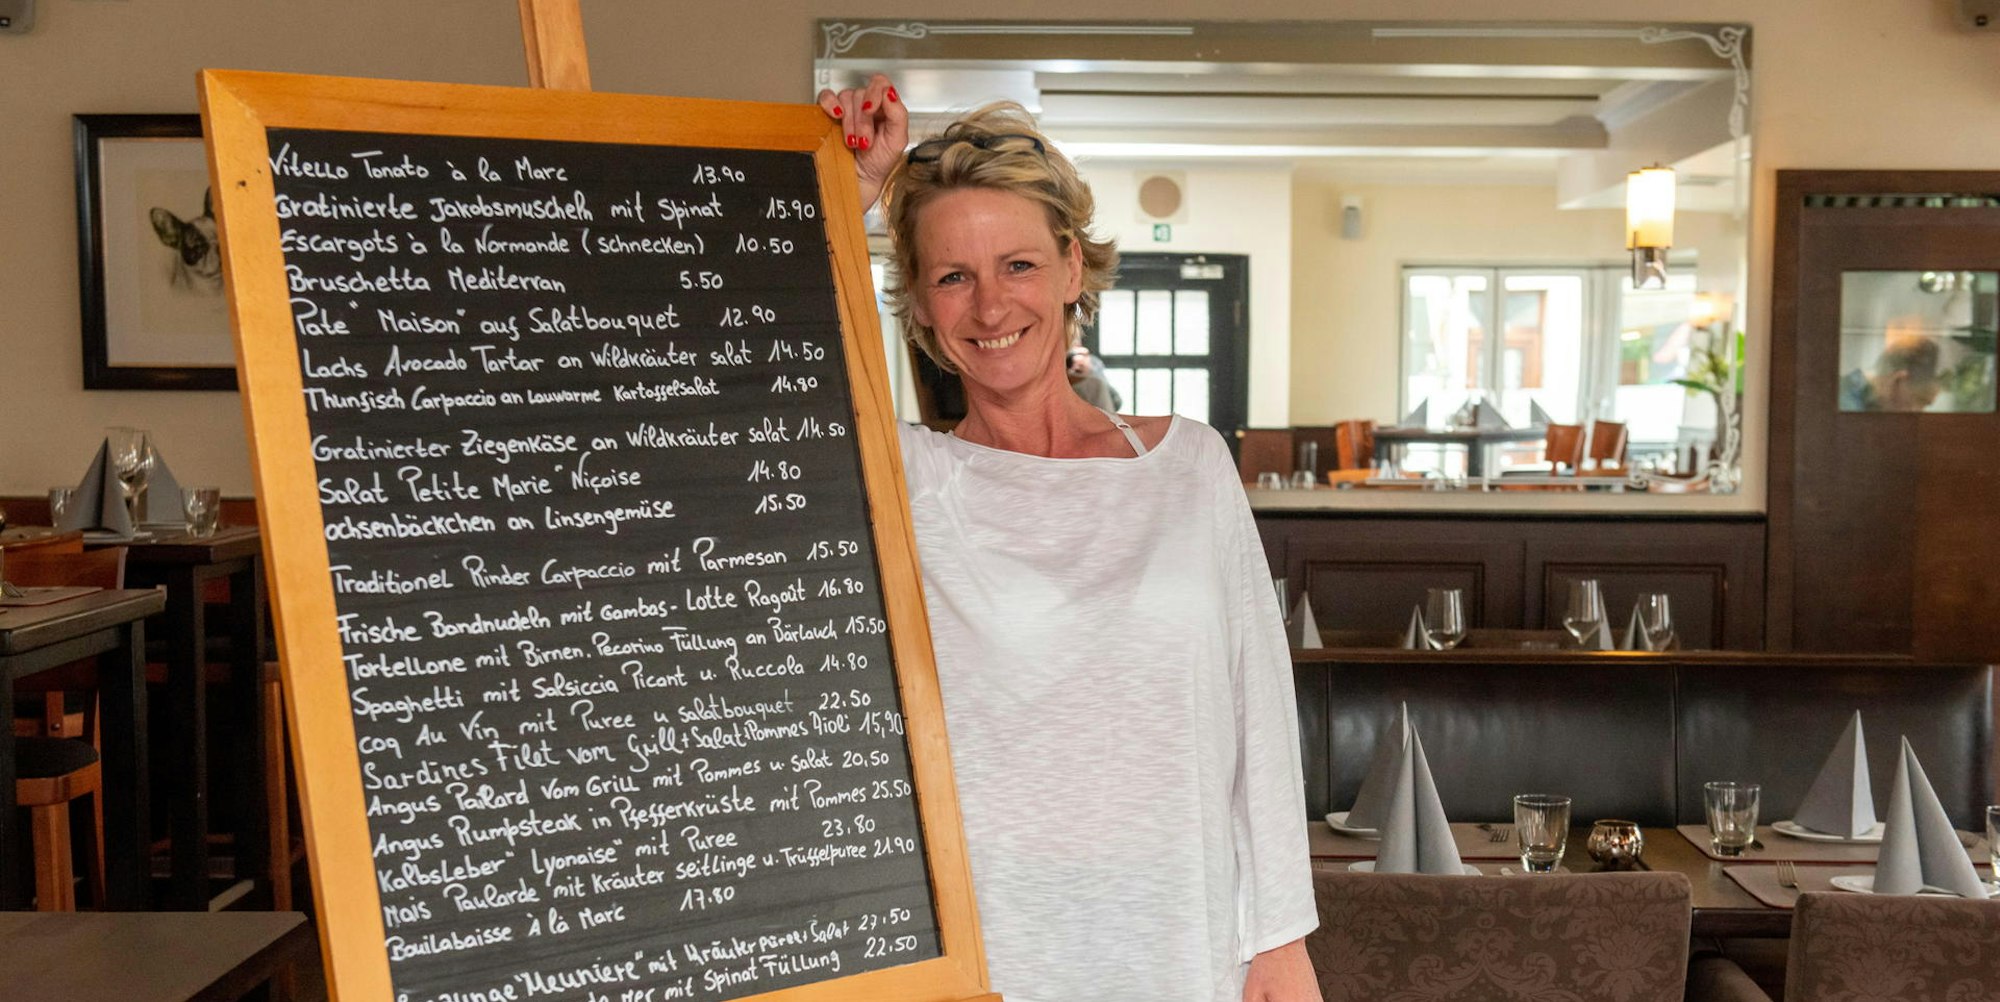 Vitello Tonato à la Marc 13.90
Gratinierte Jakobsmuscheln mit Spinat 15.90
Escargots à la Normande (schnecken) 10.50
Bruschetta Mediterran 5.50
Pate "Maison" auf Salatbouquet 12.90
Lachs Avocado Tartar an Wildkräuter salat 14.50
Thunfisch Carpaccio an Lauwarme Kartoffelsalat 14.90
Gratinierter Ziegenkäse an Wildkräuter salat 14.50
Salat Petite Marie" Niçoise 14.80
ochsenbäckchen an Linsengemüse 15.50
Traditionel Rinder Carpaccio mit Parmesan 15.50
Frische Bandnudeln mit Gambas-Lotte Ragoût 16.80
Tortellone mit Birnen. Pecorino Füllung an Bärlauch 15.50
Spaghetti mit Salsiccia Picant u. Ruccola 14.80
Coq Au Vin mit Puree u salatbouquet 22.50
Sardines Filet vom Grill+Salat+Pommes Aioli 15,90
Angus Pailard vom Grill mit Pommes u. salat 20,50
Angus Rumpsteak in Pfefferkrüste mit Pommes 25.50
Kalbsleber "Lyonaise" mit Puree 23.80
Mais Paularde mit Kräuter seitlinge u. Trüffelpuree 21.90
Bouilabaisse À là Marc 17.80
"Meuniere" mit Kräuterpüree+Salat 27.50
mer mit Spinat Füllung 22.50